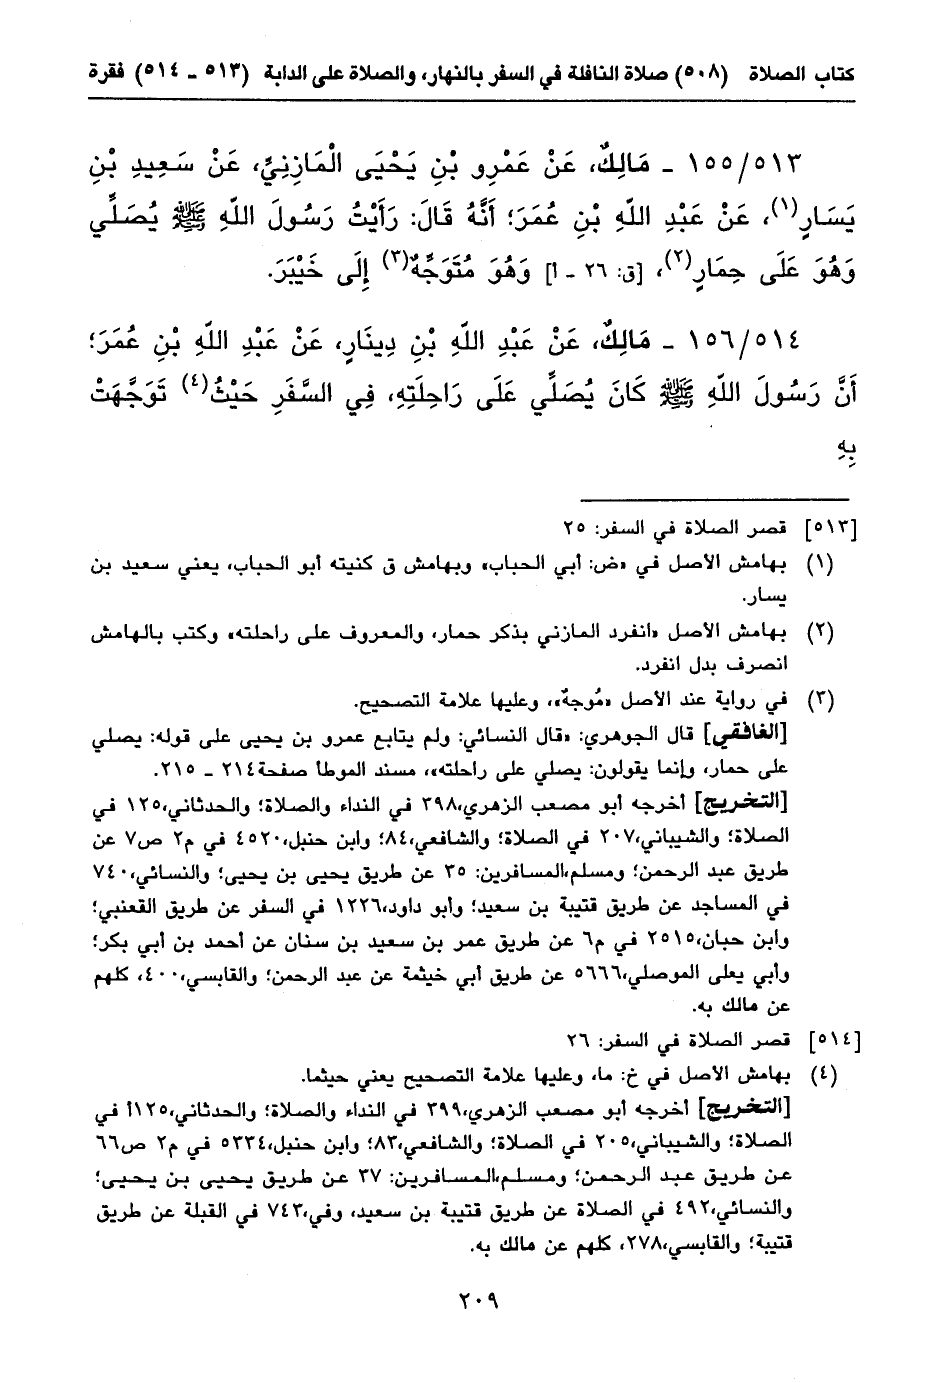 كتاب الصلاة (٥٠٨) صلاة النافلة في السفر بالنهار، والصلاة على الدابة (٥١٣ - ٥١٤) فقرة
١٥٥/٥١٣ - مَالِكٌ، عَنْ عَمْرِو بْنِ يَحْيَى الْمَازِنِيِّ، عَنْ سَعِيدِ بْنِ
يَسَارٍ(١)، عَنْ عَبْدِ اللَّهِ بْنِ عُمَرَ؛ أَنَّهُ قَالَ: رَأَيْتُ رَسُولَ اللَّهِ ﷺ يُصَلِّي
وَهُوَ عَلَى حِمَارٍ(٢)، [ق: ٢٦ - أ] وَهُوَ مُتَوَجِّهٌ(٣) إِلَى خَيْبَرَ.
١٥٦/٥١٤ - مَالِكٌ، عَنْ عَبْدِ اللَّهِ بْنِ دِينَارٍ، عَنْ عَبْدِ اللَّهِ بْنِ عُمَرَ؛
أَنَّ رَسُولَ اللَّهِ ﷺ كَانَ يُصَلِّي عَلَى رَاحِلَتِهِ، فِي السَّفَرِ حَيْثُ(٤) تَوَجَّهَتْ
بِهِ
[٥١٣] قصر الصلاة في السفر: ٢٥
(١) بهامش الأصل في «ض: أبي الحباب» وبهامش ق كنيته أبو الحباب، يعني سعيد بن
يسار.
(٢) بهامش الأصل «انفرد المازني بذكر حمار، والمعروف على راحلته» وكتب بالهامش
انصرف بدل انفرد.
(٣) في رواية عند الأصل «مُوجهٌ»، وعليها علامة التصحيح.
[الغافقي] قال الجوهري: «قال النسائي: ولم يتابع عمرو بن يحيى على قوله: يصلي
على حمار، وإنما يقولون: يصلي على راحلته»، مسند الموطا صفحة٢١٤ - ٢١٥.
[التخريج] أخرجه أبو مصعب الزهري،٣٩٨ في النداء والصلاة؛ والحدثاني،١٢٥ في
الصلاة؛ والشيباني،٢٠٧ في الصلاة؛ والشافعي،٨٤؛ وابن حنبل،٤٥٢٠ في م٢ ص٧ عن
طريق عبد الرحمن؛ ومسلم،المسافرين: ٣٥ عن طريق يحيى بن يحيى؛ والنسائي،٧٤٠
في المساجد عن طريق قتيبة بن سعيد؛ وأبو داود،١٢٢٦ في السفر عن طريق القعنبي؛
وابن حبان،٢٥١٥ في م٦ عن طريق عمر بن سعيد بن سنان عن أحمد بن أبي بكر؛
وأبي يعلى الموصلي،٥٦٦٦ عن طريق أبي خيثمة عن عبد الرحمن؛ والقابسي،٤٠٠، كلهم
عن مالك به.
[٥١٤] قصر الصلاة في السفر: ٢٦
(٤) بهامش الأصل في خ: ما، وعليها علامة التصحيح يعني حيثما.
[التخريج] أخرجه أبو مصعب الزهري،٣٩٩ في النداء والصلاة؛ والحدثاني،١٢٥أ في
الصلاة؛ والشيباني،٢٠٥ في الصلاة؛ والشافعي،٨٣؛ وابن حنبل،٥٣٣٤ في م٢ ص٦٦
عن طريق عبد الرحمن؛ ومسلم،المسافرين: ٣٧ عن طريق يحيى بن يحيى؛
والنسائي،٤٩٢ في الصلاة عن طريق قتيبة بن سعيد، وفي،٧٤٣ في القبلة عن طريق
قتيبة؛ والقابسي،٢٧٨، كلهم عن مالك به.
٢٠٩